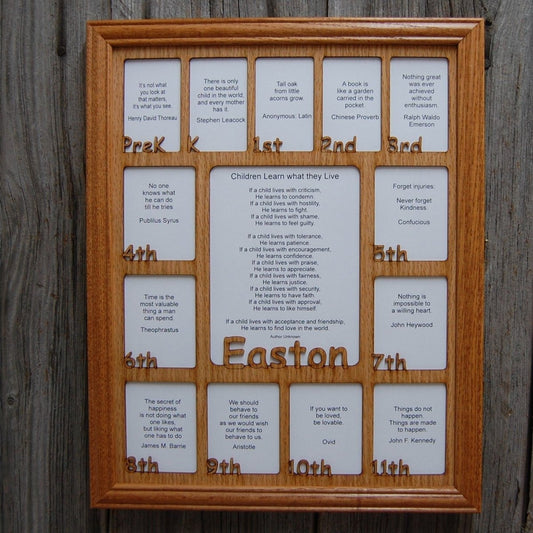 It's not what
you look at
that matters,
it's what you see.
Henry David Thoreau
PreK
There is only
one beautiful
child in the world
and every mother
has it.
Stephen Leacock
K
Tall oak
from little
acorns grow.
Anonymous: Latin
1st
A book is
like a garden
carried in the
pocket.
Chinese Proverb
2nd
Nothing great
was ever
achieved
without
enthusiasm.
Ralph Waldo
Emerson
3rd
No one
knows what
he can do
till he tries
Publilius Syrus
4th
Children Learn what they Live
If a child lives with criticism,
He learns to condemn.
If a child lives with hostility,
He learns to fight.
If a child lives with shame,
He learns to feel guilty.
If a child lives with tolerance,
He learns patience.
If a child lives with encouragement,
He learns confidence.
If a child lives with praise,
He learns to appreciate.
If a child lives with fairness,
He learns justice.
If a child lives with security,
He learns to have faith.
If a child lives with approval,
He learns to like himself.
If a child lives with acceptance and friendship,
He learns to find love in the world.
Author Unknown
Easton
Forget injuries.
Never forget
Kindness.
Confucious
5th
Time is the
most valuable
thing a man
can spend.
Theophrastus
6th
Nothing is
impossible to
a willing heart.
John Heywood
7th
The secret of
happiness
is not doing what
one likes,
but liking what
one has to do
James M. Barrie
8th
We should
behave to
our friends
as we would wish
our friends to
behave to us.
Aristotle
9th
If you want to
be loved,
be lovable.
Ovid
10th
Things do not
happen.
Things are made
to happen.
John F. Kennedy
11th